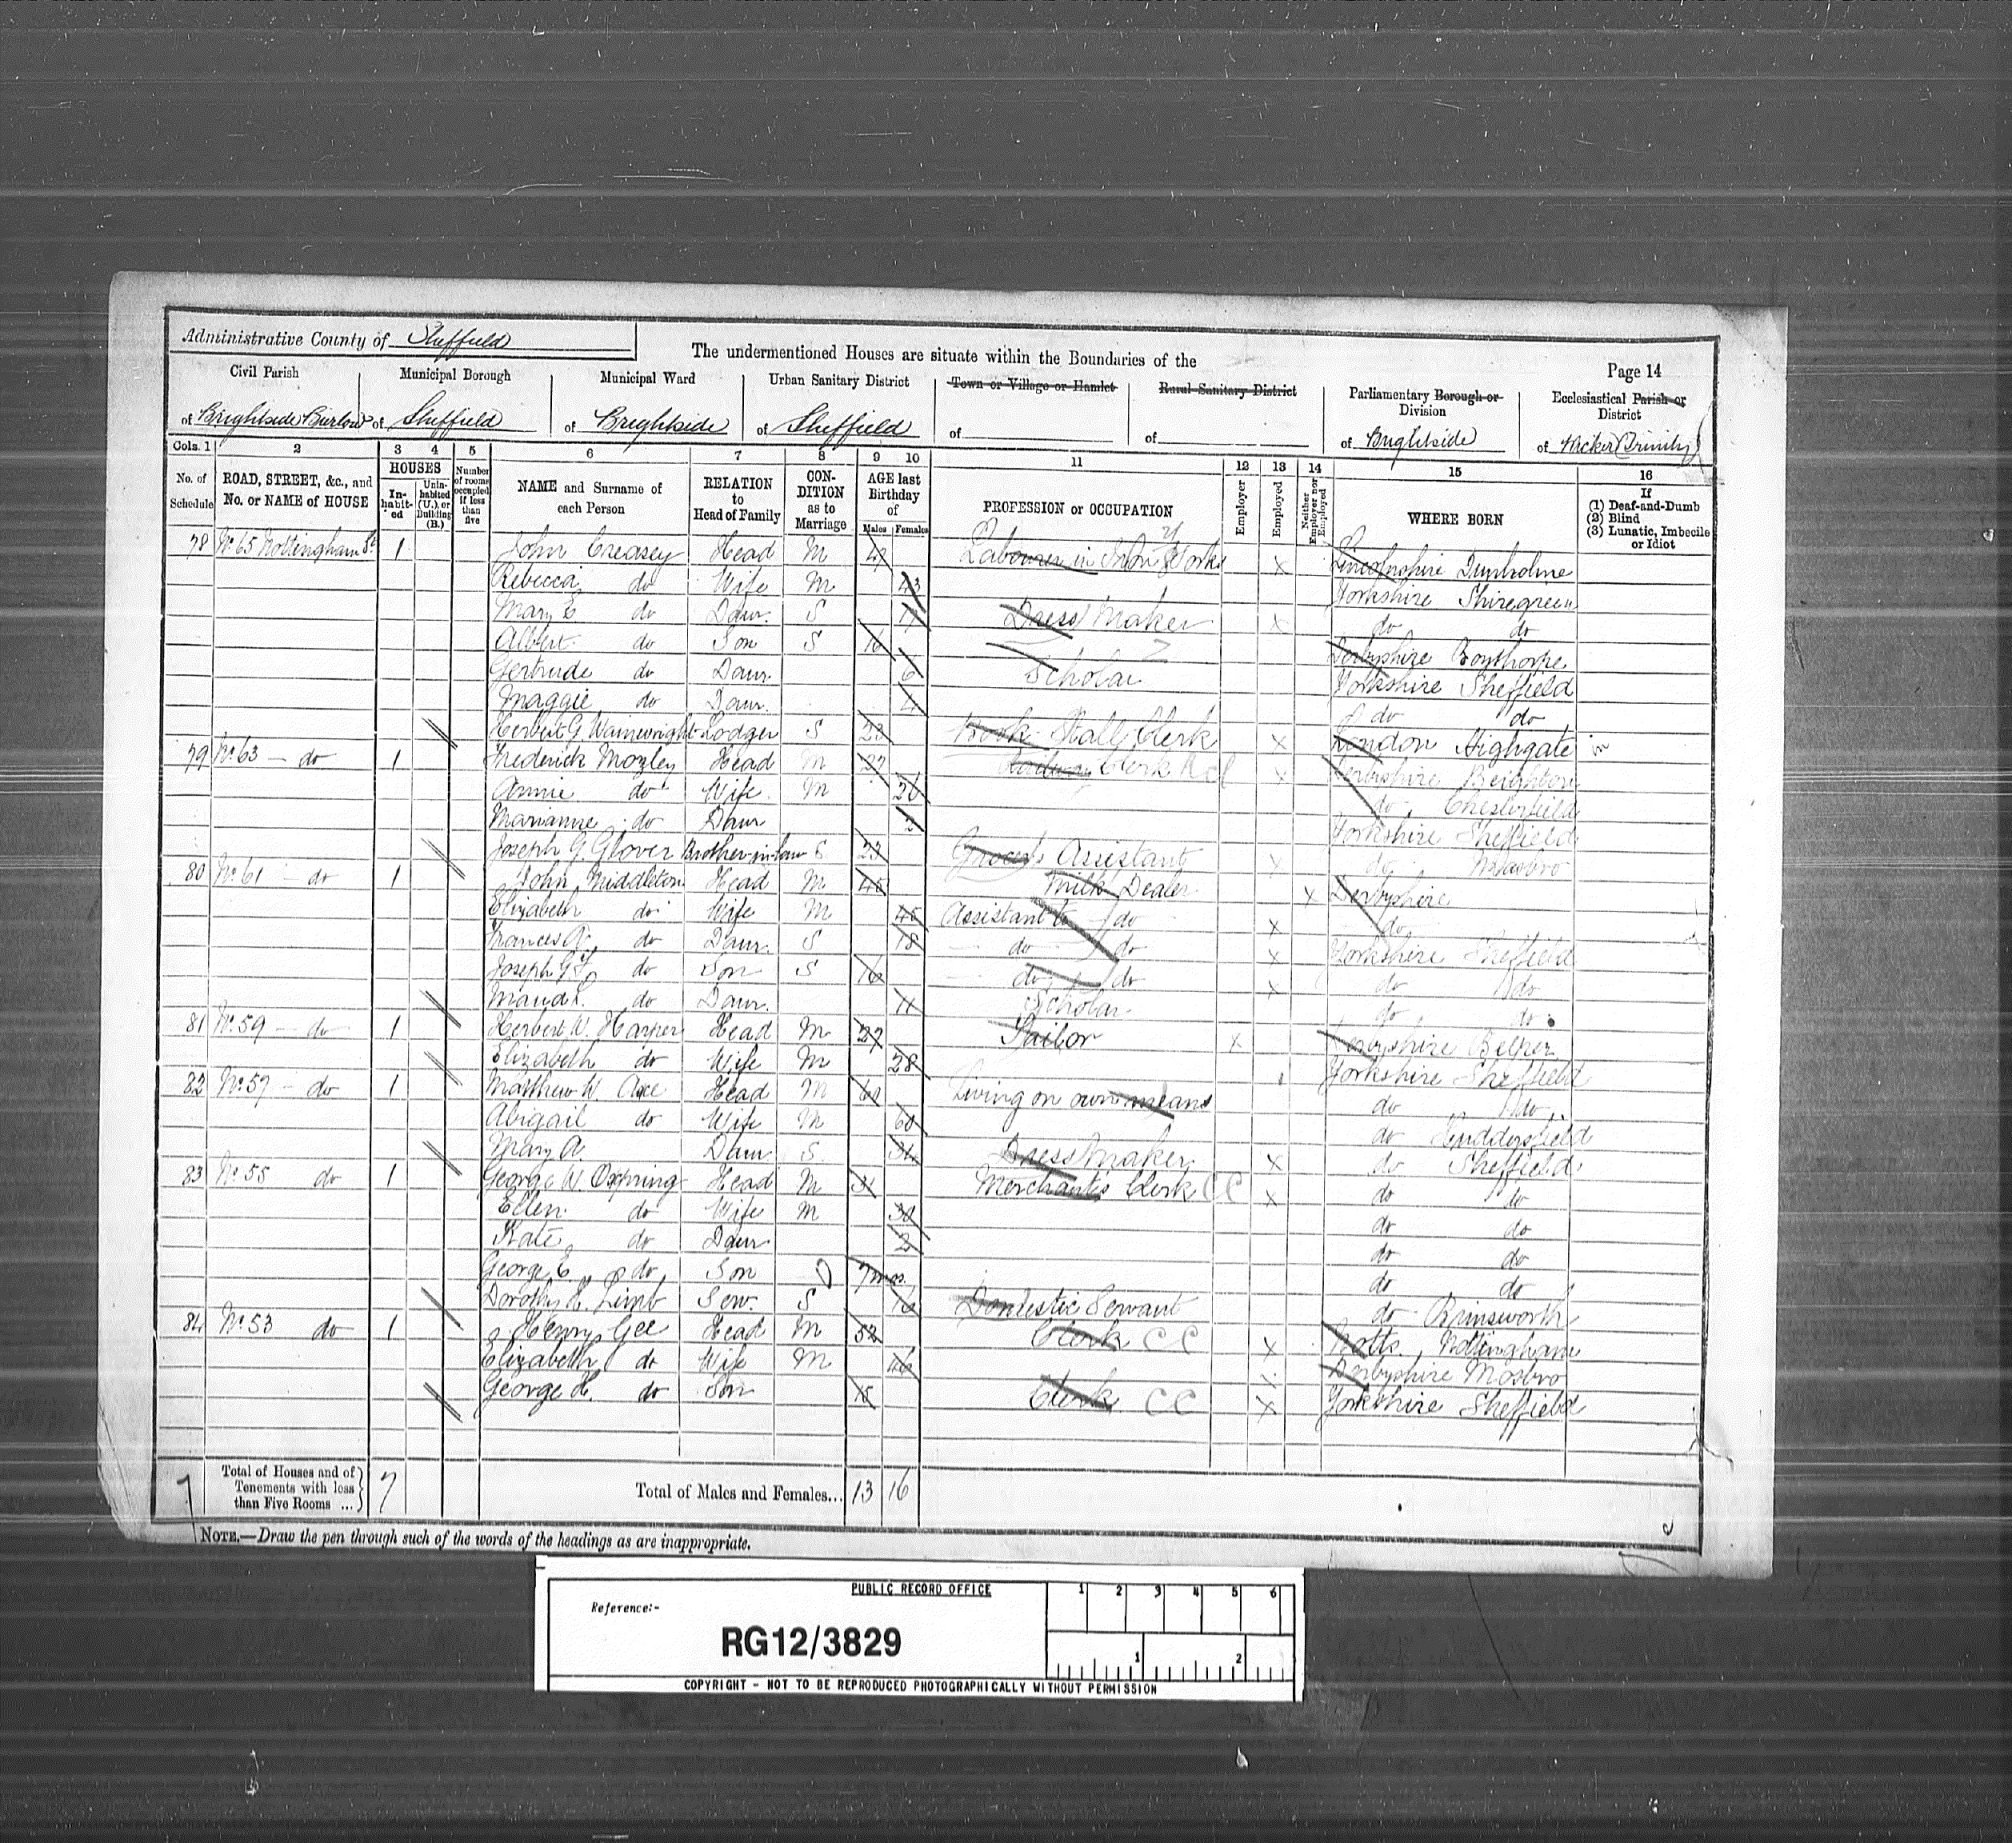 Administrative County of Sheffield
The undermentioned Houses are situate within the Boundaries of the
Page 14
Civil Parish Municipal Borough Municipal Ward Urban Sanitary District Town or Village or Hamlet Rural Sanitary District Parliamentary Borough or Division Ecclesiastical Parish or District
of Brightside Bierlow of Sheffield of Brightside of Sheffield of of of Brightside of Wicker (Trinity)
Cols. 1 2 3 4 5 6 7 8 9 10 11 12 13 14 15 16
No. of Schedule ROAD, STREET, &c., and No. or NAME of HOUSE HOUSES Inhabited Uninhabited (U.), or Building (B.) Number of rooms occupied if less than five NAME and Surname of each Person RELATION to Head of Family CONDITION as to Marriage AGE last Birthday of Males Females PROFESSION or OCCUPATION Employer Employed Neither Employer nor Employed WHERE BORN If (1) Deaf-and-Dumb (2) Blind (3) Lunatic, Imbecile or Idiot
78 No. 65 Nottingham St 1 John Creasey Head M Labourer in Iron Works X Lincolnshire Dunholme
Rebecca do Wife M 43 Yorkshire Shiregreen
Mary E. do Daur. S 17 Dress Maker X do do
Albert do Son S 16 Derbyshire Boythorpe
Gertrude do Daur. 6 Scholar Yorkshire Sheffield
Maggie do Daur. 4 do do
Herbert G. Wainwright Lodger S 23 Book Stall Clerk X London Highgate
79 No. 63 do 1 Frederick Mozley Head M 27 Railway Clerk X Derbyshire Beighton
Annie do Wife M 26 do Chesterfield
Marianne do Daur Yorkshire Sheffield
Joseph G. Glover Brother-in-law S 23 Grocer's Assistant X do
80 No. 61 do 1 John Middleton Head M 45 Milk Dealer X Derbyshire
Elizabeth do Wife M 45 Assistant to do X do
Frances A. do Daur. S 18 do do X Yorkshire Sheffield
Joseph G. do Son S 16 do do X do do
Maud L. do Daur. 11 Scholar do do
81 No. 59 do 1 Herbert W. Harper Head M 27 Tailor X Derbyshire Belper
Elizabeth do Wife M 28 Yorkshire Sheffield
82 No. 57 do 1 Matthew W. Axe Head M 60 Living on own means do do
Abigail do Wife M 60 do Huddersfield
Mary A. Daur. S 34 Dress Maker X do Sheffield
83 No. 55 do 1 George W. Oxspring Head M 31 Merchant's Clerk CC X do do
Ellen do Wife M 30 do do
Kate do Daur 2 do do
George E. do Son 7 mos. do do
Dorothy H. Limb Serv. S 16 Domestic Servant do Brinsworth
84 No. 53 do 1 Henry Gee Head M 52 Clerk CC X Notts. Nottingham
Elizabeth do Wife M 46 X Derbyshire Mosbro
George H. do Son 15 Clerk CC X Yorkshire Sheffield
7 Total of Houses and of Tenements with less than Five Rooms ... 7 Total of Males and Females... 13 16
NOTE.—Draw the pen through such of the words of the headings as are inappropriate.
PUBLIC RECORD OFFICE
Reference:-
RG12/3829
1 2 3 4 5 6
1 2
COPYRIGHT - NOT TO BE REPRODUCED PHOTOGRAPHICALLY WITHOUT PERMISSION